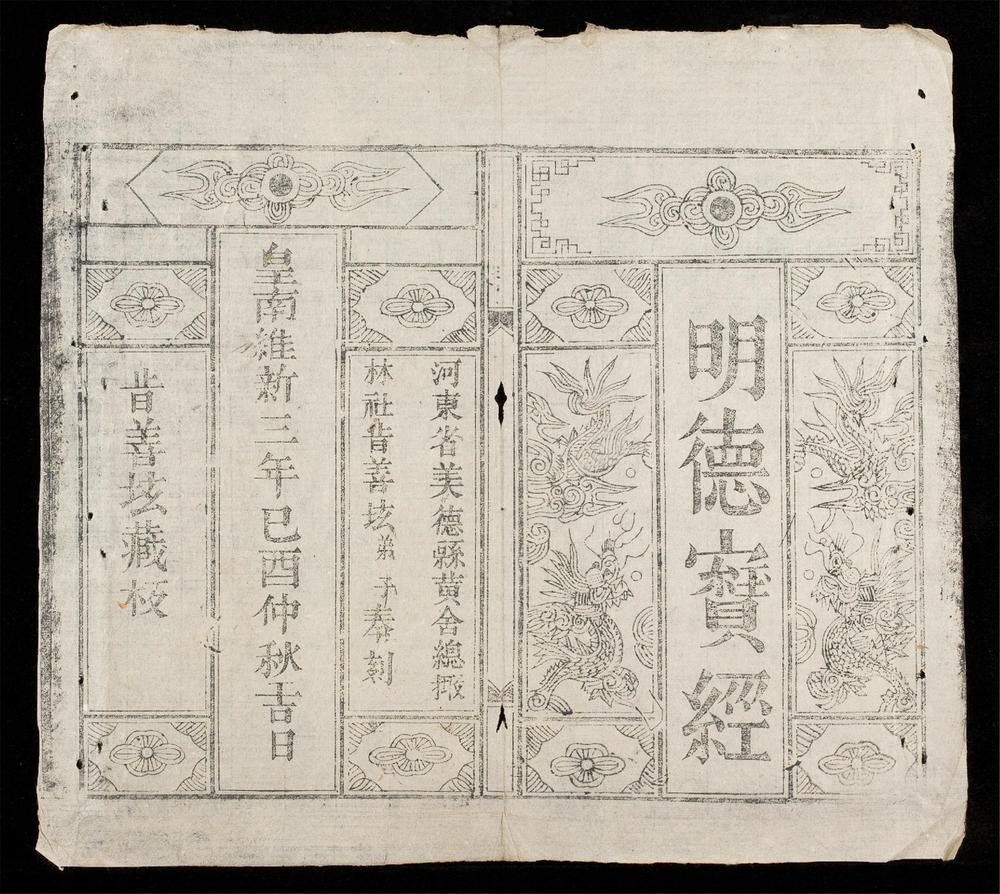 明德寳經
河東省美德縣黄舍總
林社昔善坛弟子奉刻
皇南維新三年己酉仲秋吉日
昔善坛藏板